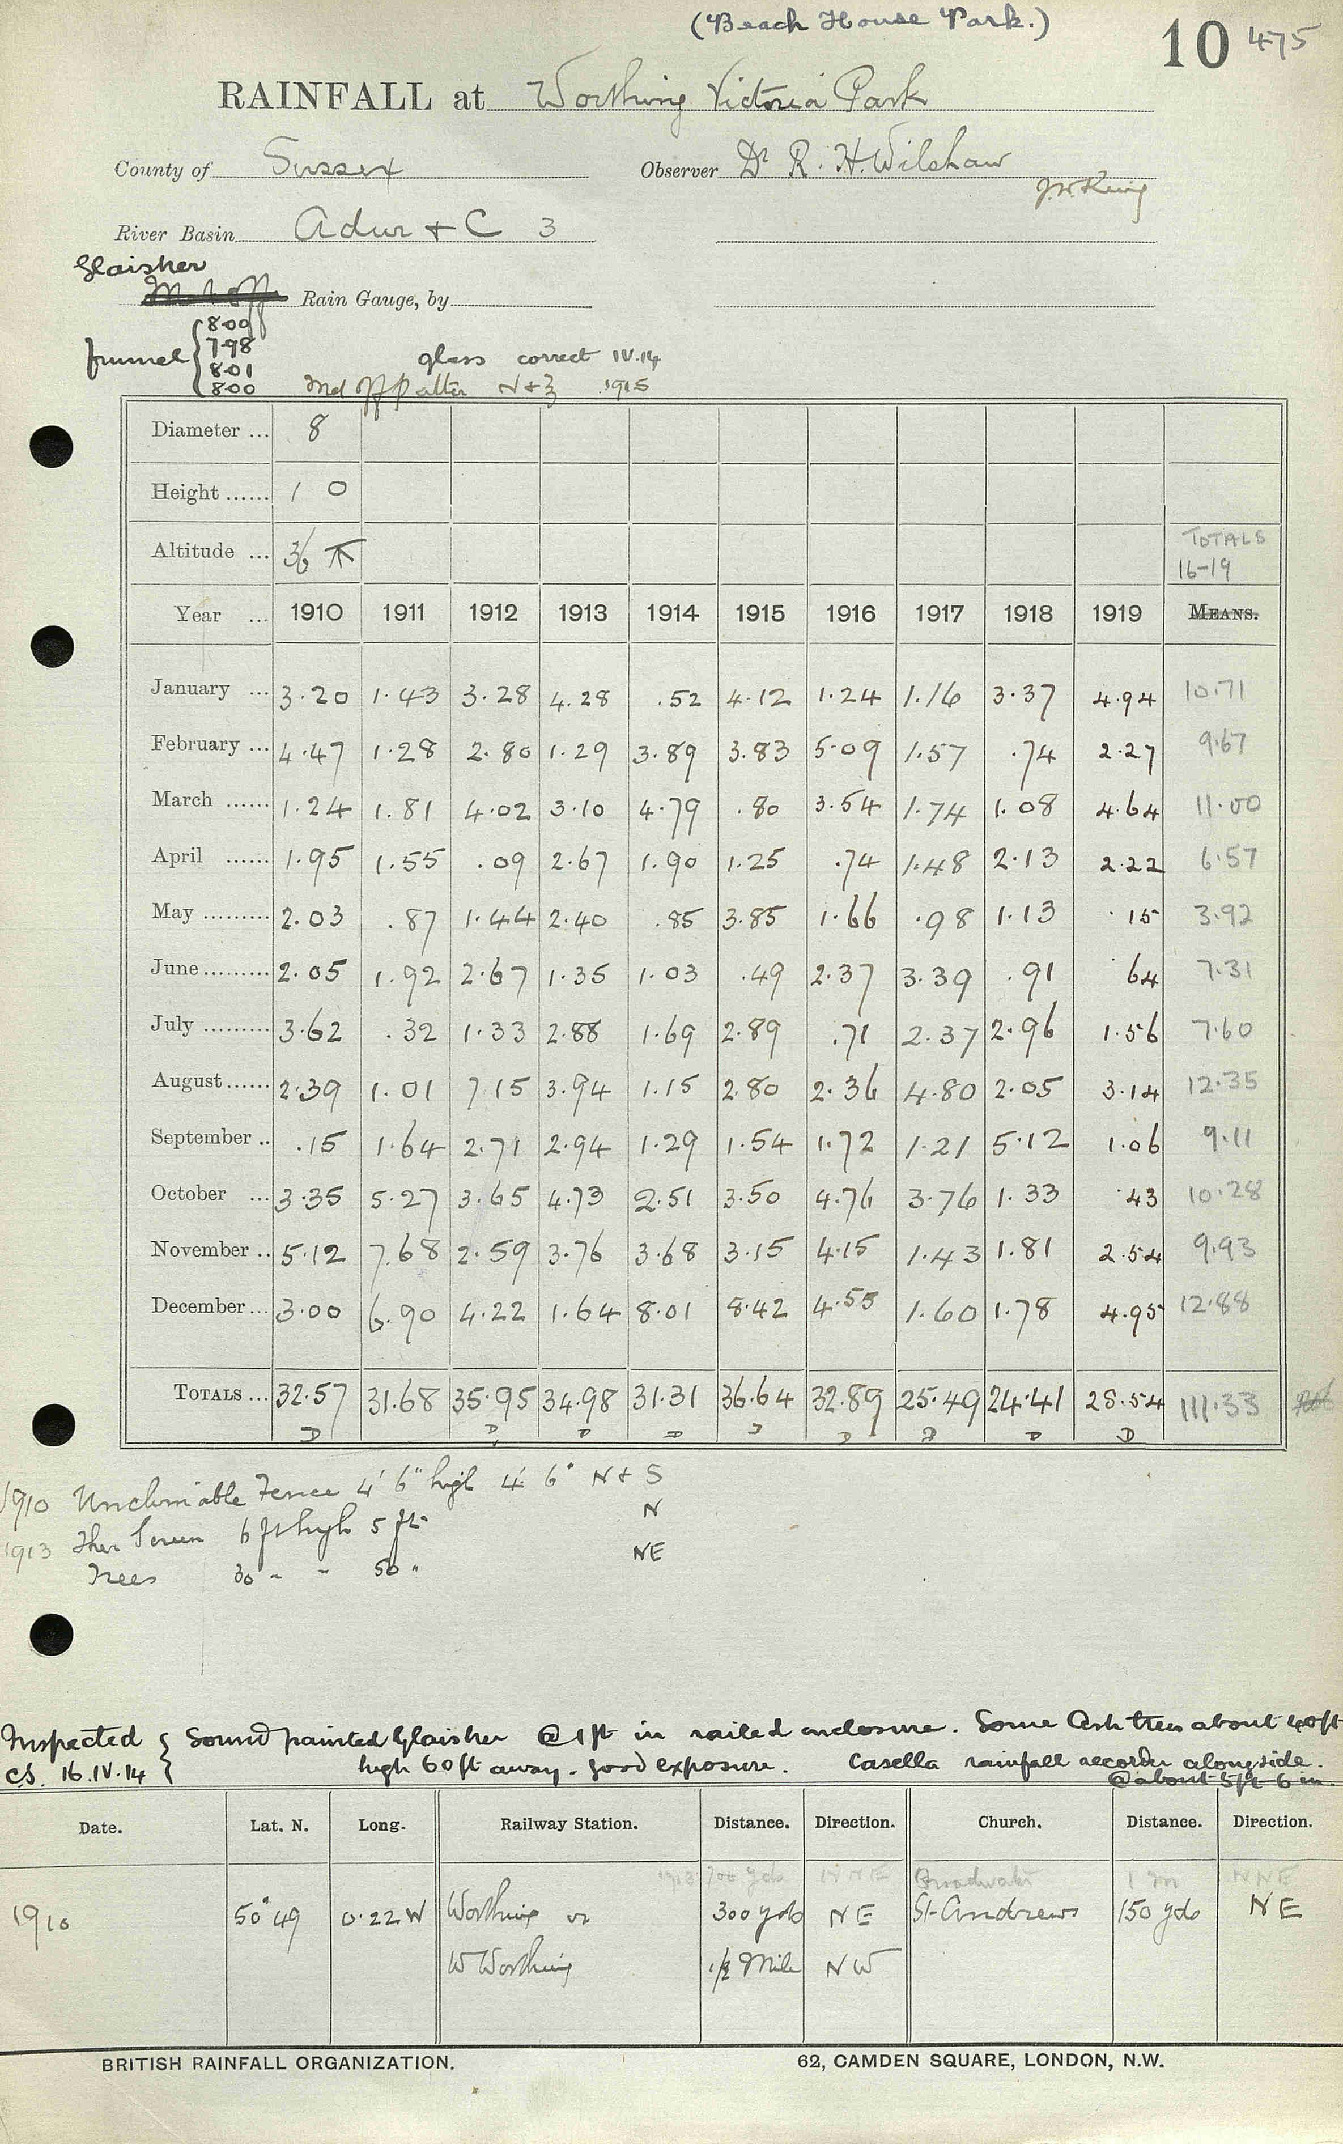 (Beach House Park.)
10 475
RAINFALL at Worthing Victoria Park
County of Sussex Observer Dr R. H. Wilshaw
J.W. King
River Basin Adur + C 3
Glaisher
Met Off Rain Gauge, by
funnel { 8.00 7.98 8.01 8.00
glass correct IV.14
Met Off Patter N+Z 1915
Diameter ... 8
Height ...... 1 0
Altitude ... 36
TOTALS 16-19
Year ... 1910 1911 1912 1913 1914 1915 1916 1917 1918 1919 MEANS.
January ... 3.20 1.43 3.28 4.28 .52 4.12 1.24 1.16 3.37 4.94 10.71
February ... 4.47 1.28 2.80 1.29 3.89 3.83 5.09 1.57 .74 2.27 9.67
March ...... 1.24 1.81 4.02 3.10 4.79 .80 3.54 1.74 1.08 4.64 11.00
April ...... 1.95 1.55 .09 2.67 1.90 1.25 .74 1.48 2.13 2.22 6.57
May ......... 2.03 .87 1.44 2.40 .85 3.85 1.66 .98 1.13 .15 3.92
June ......... 2.05 1.92 2.67 1.35 1.03 .49 2.37 3.39 .91 .64 7.31
July ......... 3.62 .32 1.33 2.88 1.69 2.89 .71 2.37 2.96 1.56 7.60
August ...... 2.39 1.01 7.15 3.94 1.15 2.80 2.36 4.80 2.05 3.14 12.35
September .. .15 1.64 2.71 2.94 1.29 1.54 1.72 1.21 5.12 1.06 9.11
October ... 3.35 5.27 3.65 4.73 2.51 3.50 4.76 3.76 1.33 .43 10.28
November .. 5.12 7.68 2.59 3.76 3.68 3.15 4.15 1.43 1.81 2.54 9.93
December ... 3.00 6.90 4.22 1.64 8.01 8.42 4.55 1.60 1.78 4.95 12.88
TOTALS ... 32.57 31.68 35.95 34.98 31.31 36.64 32.89 25.49 24.41 28.54 111.33
D D D D D D D D D
1910 Unclimable Fence 4' 6" high 4' 6" N + S
1913 Ther Screen 6 ft high 5 ft. N
Trees 30 " " 50 " NE
Inspected { Sound painted Glaisher @ 1 ft in railed enclosure. Some Ash trees about 40ft
CS. 16.IV.14 high 60ft away. good exposure. Casella rainfall recorder alongside.
@ about 5 ft 6 in.
Date. Lat. N. Long. Railway Station. Distance. Direction. Church. Distance. Direction.
1913 700 yds NNE Broadwater 1 m NNE
1910 50° 49 0.22 W Worthing or 300 yds NE St Andrews 150 yds NE
W Worthing 1/2 Mile NW
BRITISH RAINFALL ORGANIZATION. 62, CAMDEN SQUARE, LONDON, N.W.